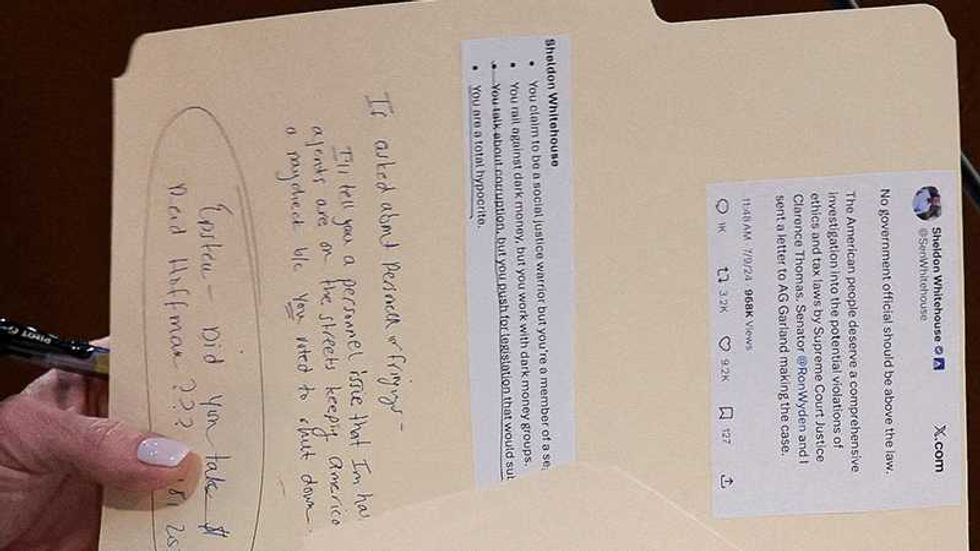 Sheldon Whitehouse
@SenWhitehouse
X.com
No government official should be above the law.
The American people deserve a comprehensive
investigation into the potential violations of
ethics and tax laws by Supreme Court Justice
Clarence Thomas. Senator @RonWyden and I
sent a letter to AG Garland making the case.
11:48 AM 7/9/24 968K Views
1K 3.2K 9.2K 127
Sheldon Whitehouse
• You claim to be a social justice warrior but you're a member of a se
• You rail against dark money, but you work with dark money groups.
• You talk about corruption, but you push for legislation that would sub
• You are a total hypocrite.
If asked about or firings -
I'll tell you a personnel issue that I'm ha
agents are on the streets keeping America
a paycheck b/c you voted to shut down.
Epstein - Did you take $
Reid Hoffman ???
PILOT G